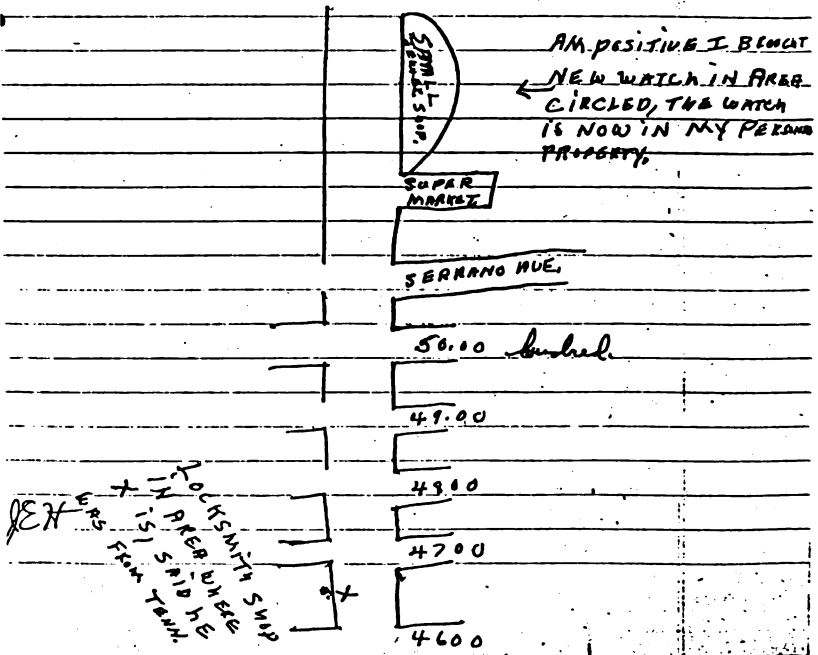 SMALL
JEWLRE SHOP.
AM POSITIVE I BROUGHT
NEW WATCH IN AREA
CIRCLED, THE WATCH
IS NOW IN MY PERSONAL
PROPERTY.
SUPER
MARKET.
SERRANO AVE.
50.00 hundred.
49.00
4800
4700
4600
LOCKSMITH SHOP
IN AREA WHERE
X IS, SAID HE
WAS FROM TENN.
JEH
X